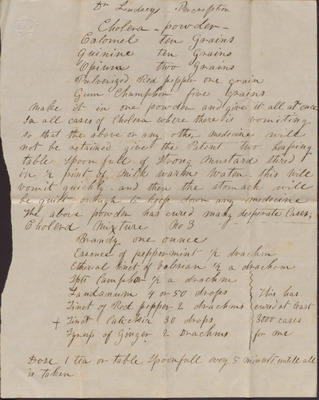 Dr Lindseys Perscription
Cholera powder
Calomel ten Grains
Quinine ten Grains
Opium two Grains
Pulverized Red pepper one grain
Gum Champhor five Grains
Make it in one powder and give it all at once
In all cases of Cholera where there is vomiting
so that the above or any other medicine will
not be retained give the Patent two heaping
table Spoonfull of Strong Mustard stired
in ½ pint of milk warm Water this will
vomit quickly and then the stomach will
be quiet enough to keep down any medicine
The above powder has cured many desperate cases;
Cholera Mixture No 3
Brandy one ounce
Essence of peppermint ½ drachm
Etheral tinct of valerean ½ a drachem
Spts Camphor ½ a drachm
Laudanum 40 or 50 drops
Tinct of Red pepper 2 drachms
+ Tinct Catechu 30 drops
Syrup of Ginger 2 Drachms
This has
cured at least
3000 cases
for me
Dose 1 tea or table Spoonfull every 5 minutes untill all
is taken